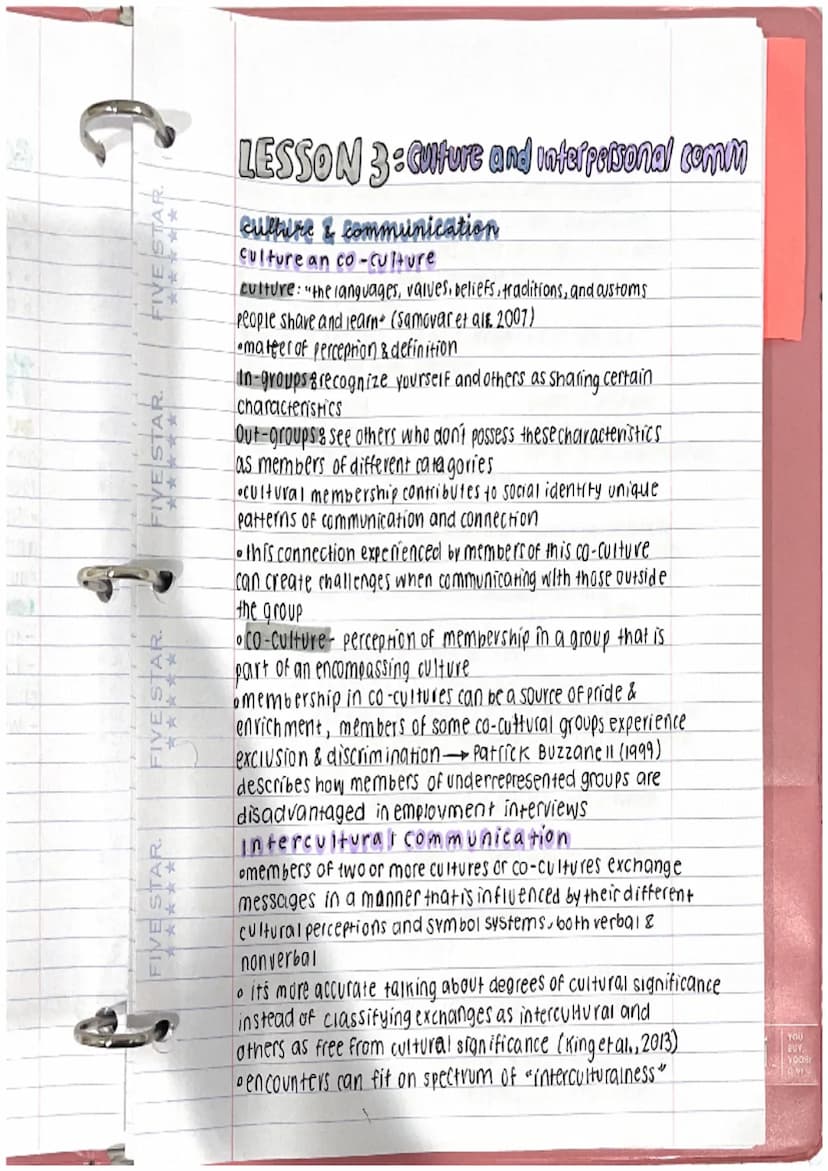 LESSON 3: culture and interpersonal comm
culture & communication
culture an co-culture
culture: "the languages, values, beliefs, traditions, and customs
people share and learn" (Samovar et al 2007)
•matter of perception & definition
In-groups: recognize yourself and others as sharing certain
characteristics
Out-groups: see others who don't possess these characteristics
as members of different catagories
•cultural membership contributes to social identity unique
patterns of communication and connection
•this connection experienced by members of this co-culture
can create challenges when communicating with those outside
the group
•co-culture- perception of membership in a group that is
part of an encompassing culture
•membership in co-cultures can be a source of pride &
enrichment, members of some co-cultural groups experience
exclusion & discrimination → Patrick Buzzanell (1999)
describes how members of underrepresented groups are
disadvantaged in employment interviews
Intercultural communication
•members of two or more cultures or co-cultures exchange
messages in a manner that is influenced by their different
cultural perceptions and symbol systems, both verbal &
nonverbal
• its more accurate talking about degrees of cultural significance
instead of classifying exchanges as intercultural and
others as free from cultural significance (King et al., 2013)
•encounters can fit on spectrum of "interculturalness"
FIVE STAR.
FIVE STAR.
FIVE STAR.
FIVE STAR.
YOU
BUY,